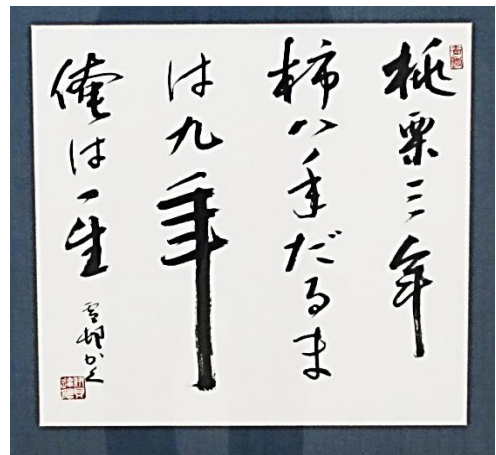 桃栗三年
柿八年だるま
は九年
俺は一生
雪邨かく